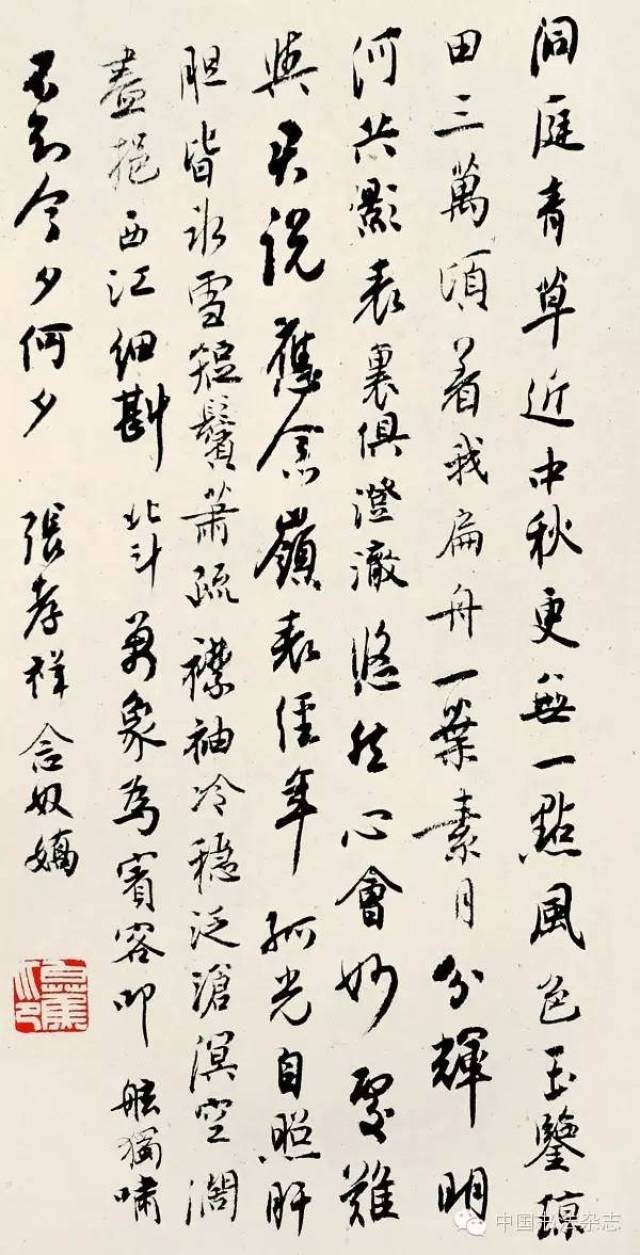 洞庭青草近中秋更無一點風色玉鑒瓊
田三萬頃着我扁舟一葉素月分輝明
河共影表裏俱澄澈悠然心會妙處難
與君說應念嶺表經年孤光自照肝
胆皆冰雪短鬢蕭疏襟袖冷穩泛滄溟空濶
盡挹西江細斟北斗萬象為賓客叩舷獨嘯
不知今夕何夕
張孝祥念奴嬌
中国书法杂志